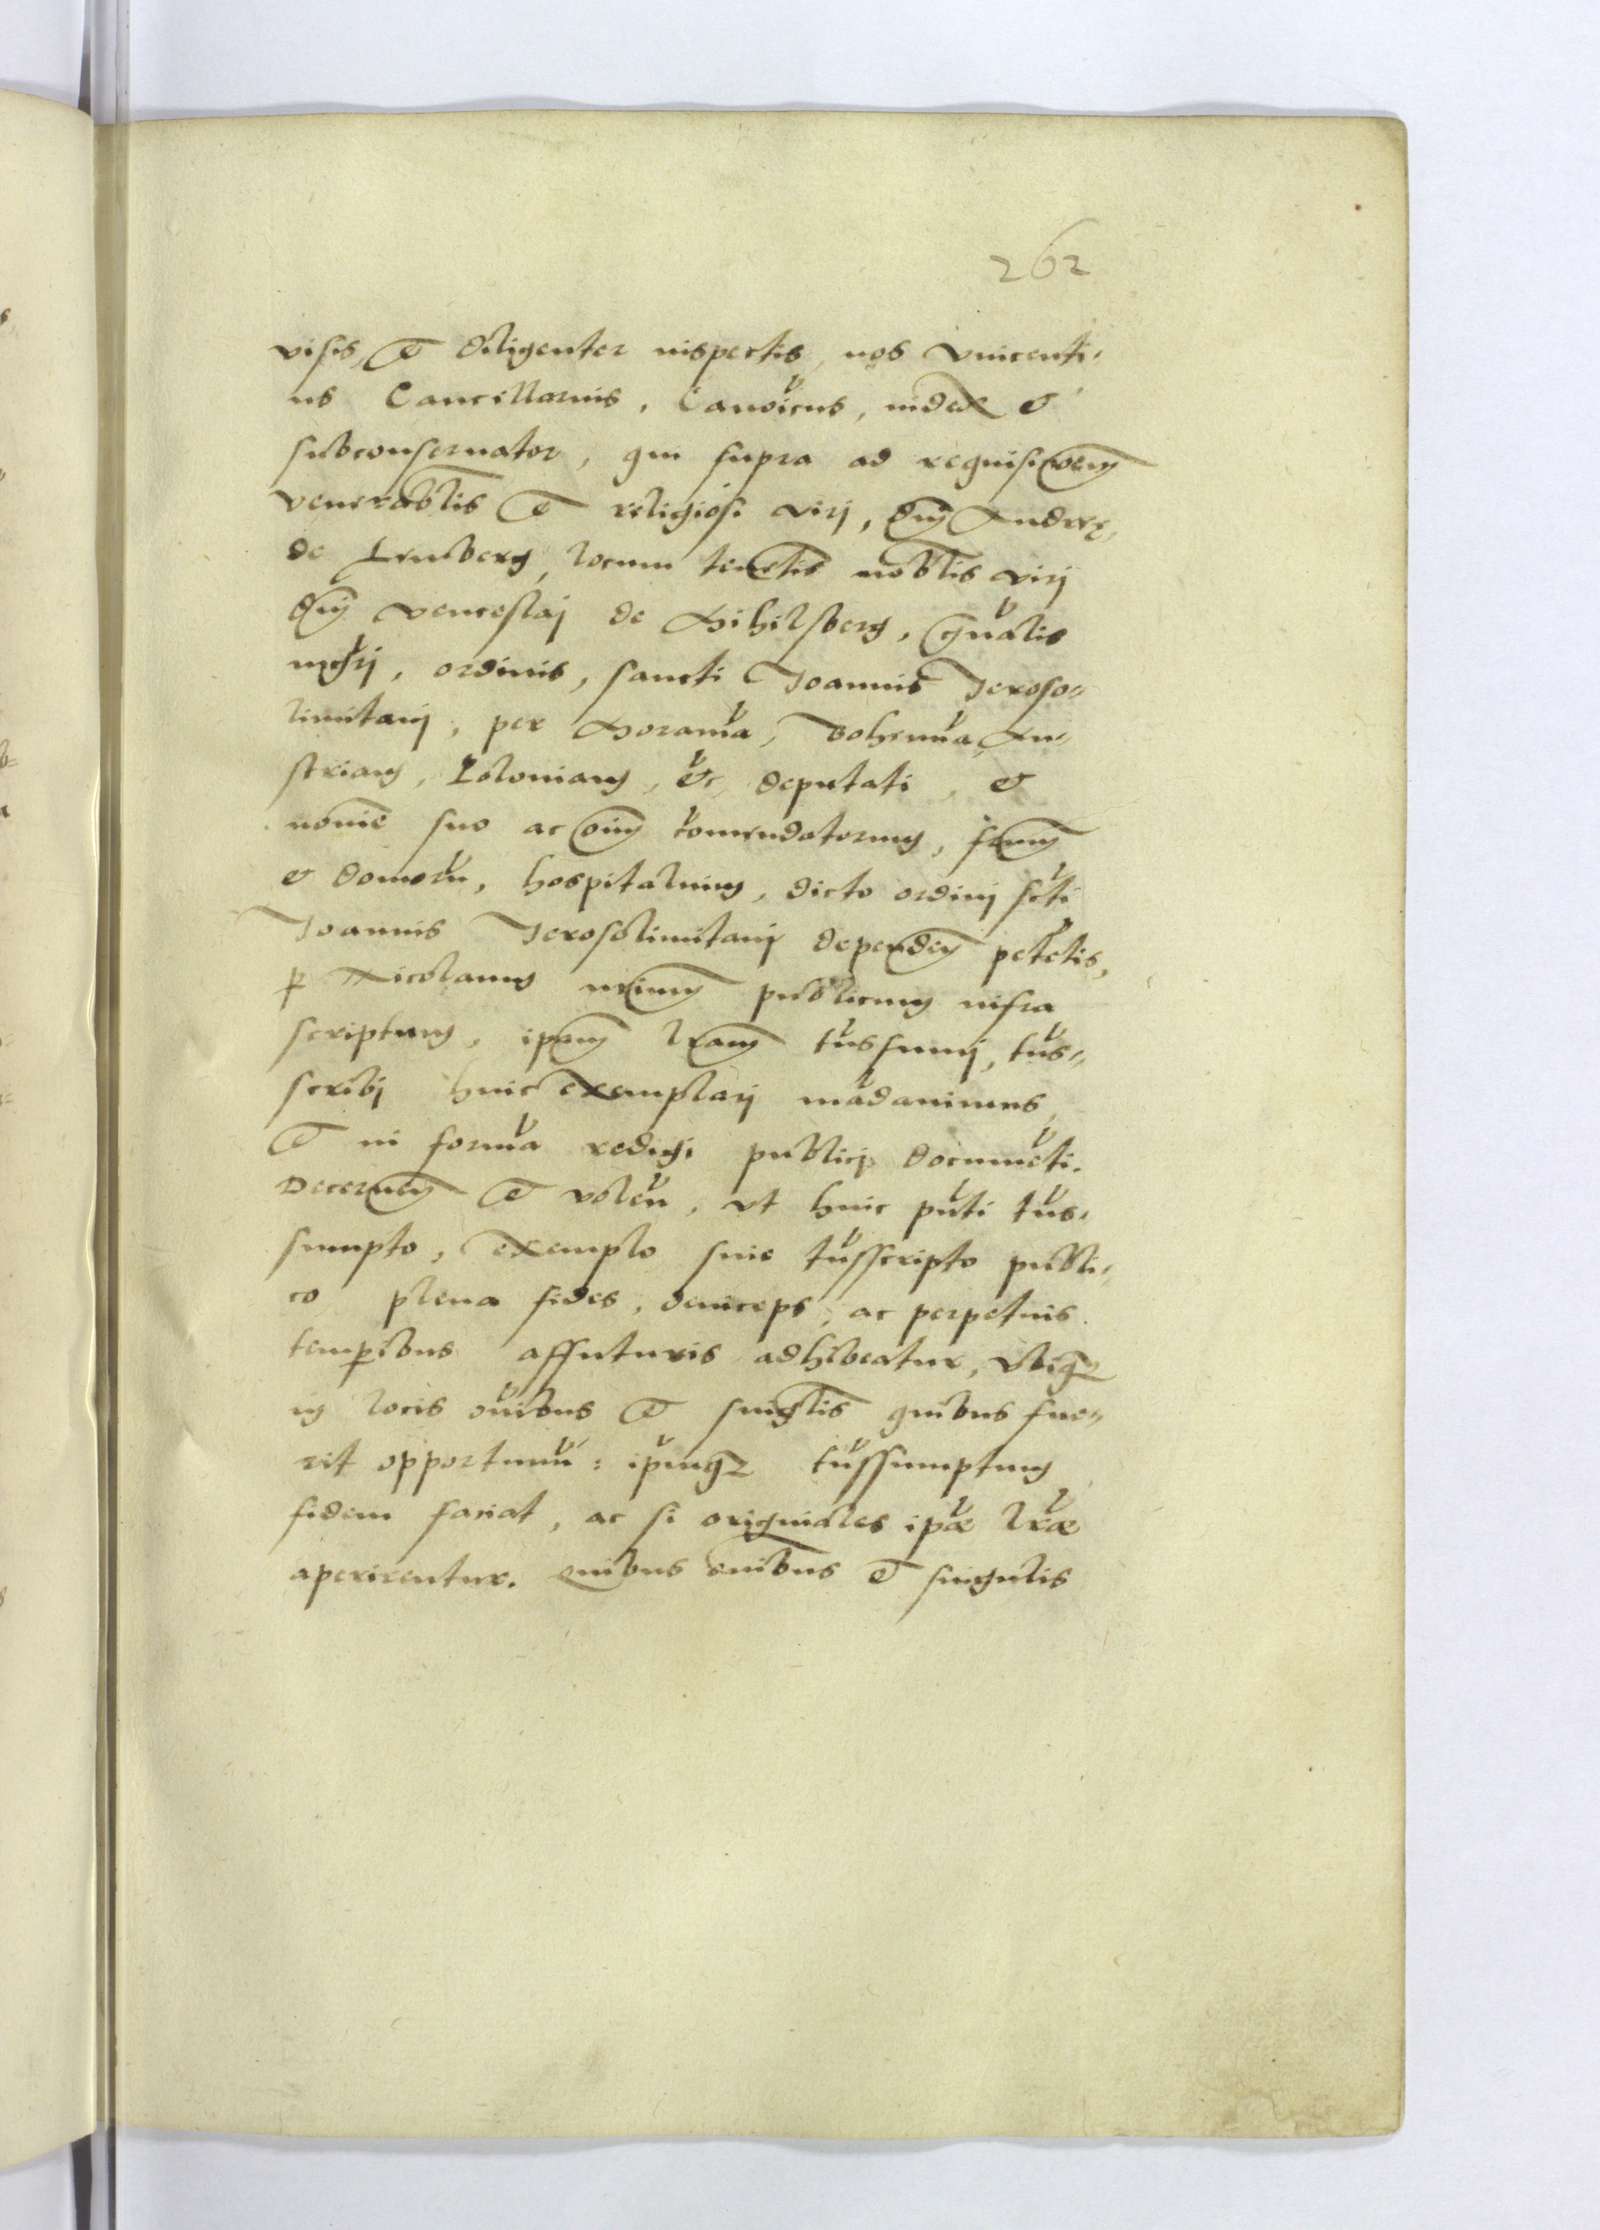 262
visis, et diligenter inspectis, nos Vincenti-
us Cancellarius, Canoicus, iudex et
subconservator, qui supra ad requisicoem
venerablis et religiosi virj, dnj Andreę,
de locum tenetis noblis virj
dnj Venceslaj de Mihilsberg, gnalis
mgrj, ordinis, sancti Joannis Jeroso-
limitanj, per Moravia, Bohemia, Au-
striam, Poloniam, etc deputati, et
nomie suo ac oim comendatorum, frum
et domoru, hospitalium, dicto ordinj scti
Joannis Jerosolimitanj dependen petetis,
p Nicolaum publicum infra
scriptum, ipam lram tnssumj, tns-
scribj huic exemplarj madavimus,
et in forma redigi publicj documeti.
Decernen et volen, ut huic pnti tns-
sumpto, exemplo sive tnsscripto publi-
co plena fides, deinceps, ac perpetuis
temporibus affuturis adhibeatur, ubiq
in locis oibus et singlis quibus fue-
rit opportunu: ipmq tnssumptum
fidem faciat, ac si originales ipae lrae
aperirentur. Quibus omibus et singulis